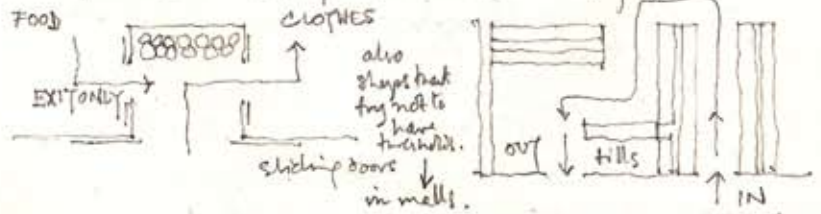 FOOD
CLOTHES
EXIT ONLY
also
shops that
try not to
have
thresholds.
in malls.
sliding doors
OUT
tills
IN